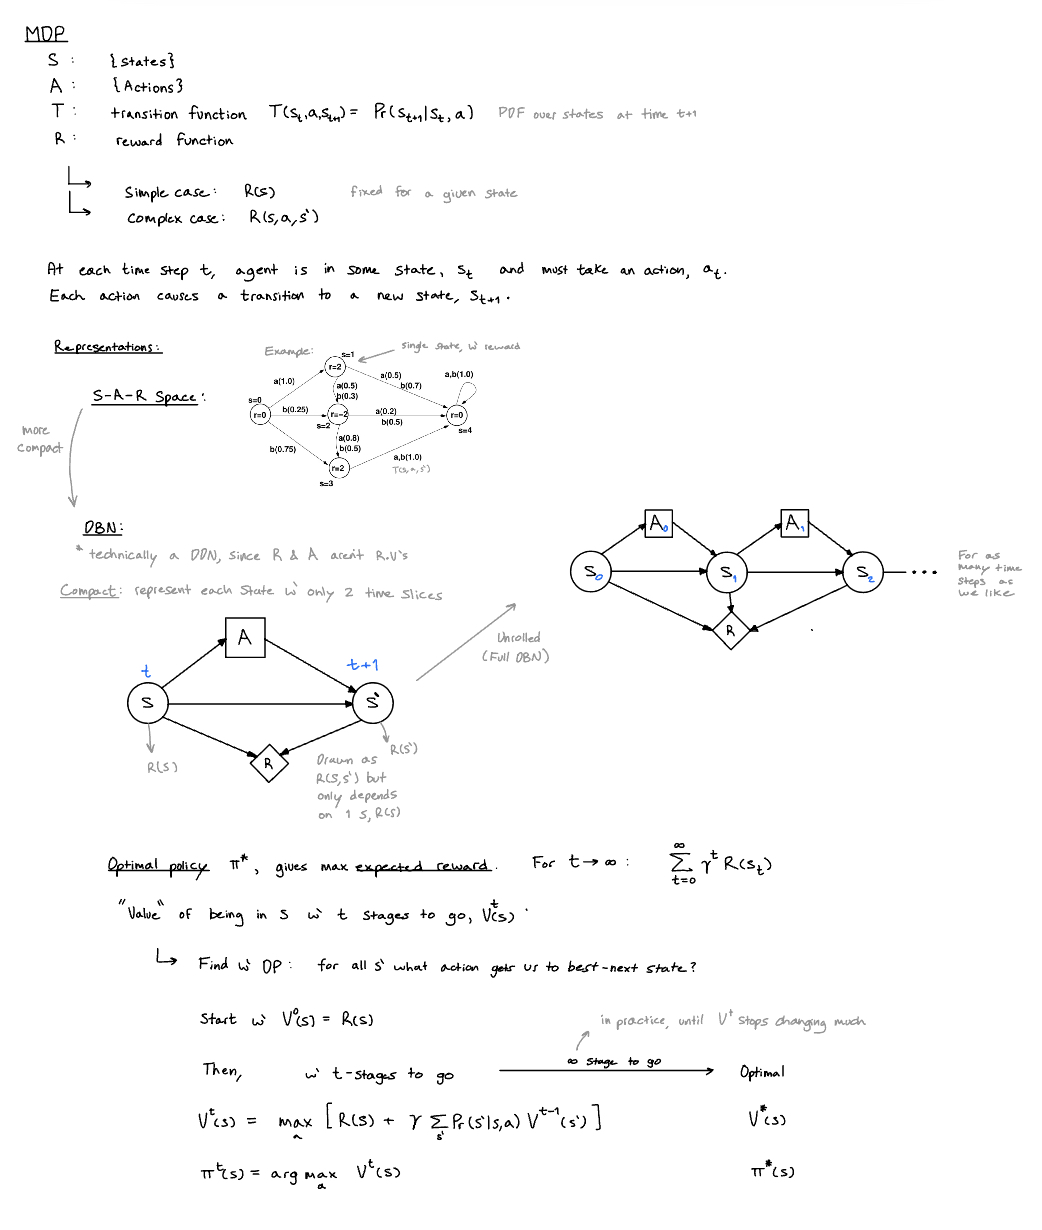 MDP
S : {states}
A : {Actions}
T : transition function T(s_t, a, s_{t+1}) = Pr(s_{t+1} | s_t, a) PDF over states at time t+1
R : reward function
Simple case: R(s) fixed for a given state
Complex case: R(s, a, s')
At each time step t, agent is in some state, s_t and must take an action, a_t.
Each action causes a transition to a new state, s_{t+1}.
Representations:
Example:
Single state, w/ reward
S-A-R Space:
s=1
r=2
a(0.5)
b(0.7)
a,b(1.0)
a(1.0)
a(0.5)
b(0.3)
s=0
r=0
b(0.25)
r=-2
s=2
a(0.2)
b(0.5)
r=0
s=4
b(0.75)
a(0.8)
b(0.5)
r=2
s=3
a,b(1.0)
T(s, a, s')
more
compact
DBN:
* technically a DDN, since R & A aren't R.V's
Compact: represent each state w/ only 2 time slices
A
t
t+1
S
S'
R
R(S)
R(S')
Drawn as
R(S,S') but
only depends
on 1 S, R(S)
Unrolled
(Full DBN)
A_0
A_1
S_0
S_1
S_2
...
R
For as
many time
steps as
we like
Optimal policy π*, gives max expected reward. For t → ∞ : ∑_{t=0}^{∞} γ^t R(s_t)
"Value" of being in s w/ t stages to go, V^t(s).
Find w/ DP: for all s' what action gets us to best-next state?
Start w/ V^0(s) = R(s)
in practice, until V^t stops changing much
Then, w/ t-stages to go
∞ stage to go
Optimal
V^t(s) = max_a [R(s) + γ ∑_{s'} Pr(s'|s,a) V^{t-1}(s')]
V*(s)
π^t(s) = arg max_a V^t(s)
π*(s)